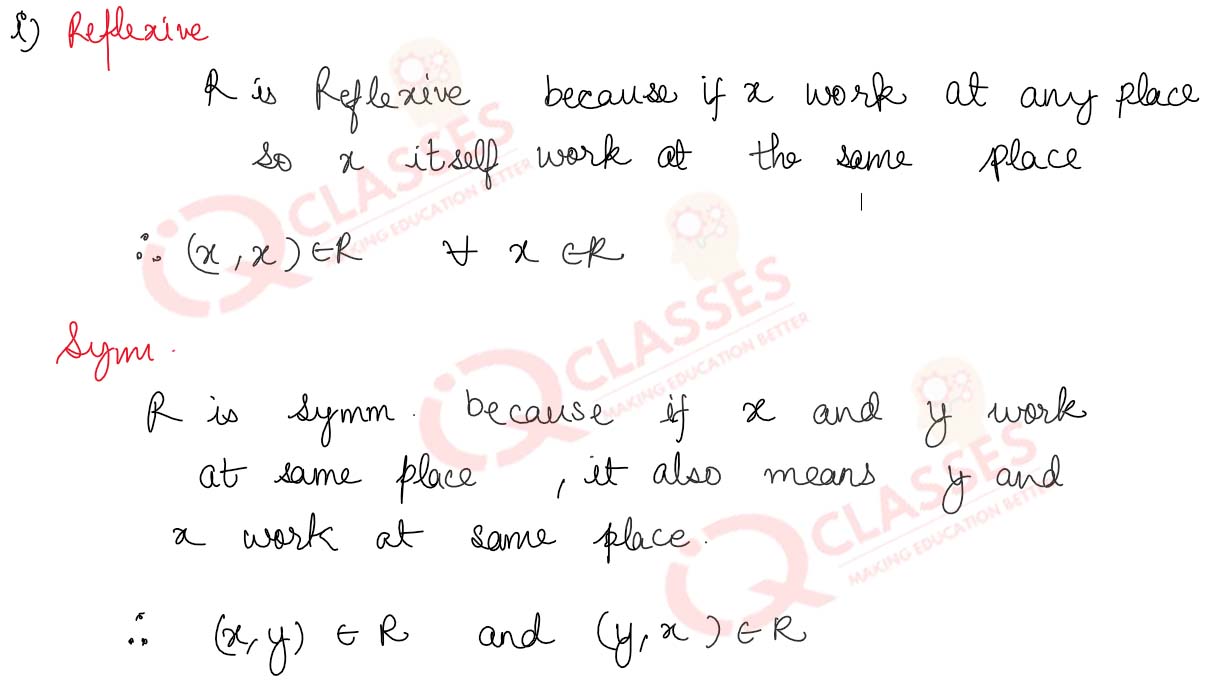 i) Reflexive
R is Reflexive because if x work at any place
so x itself work at the same place
∴ (x, x) ∈ R ∀ x ∈ R
Symm.
R is symm. because if x and y work
at same place, it also means y and
x work at same place.
∴ (x, y) ∈ R and (y, x) ∈ R
iQ CLASSES
MAKING EDUCATION BETTER
iQ CLASSES
MAKING EDUCATION BETTER
iQ CLASSES
MAKING EDUCATION BETTER